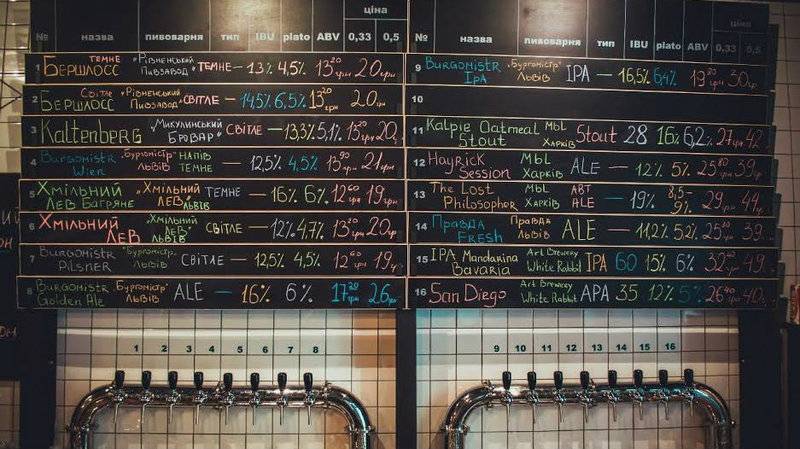 ціна
№ назва пивоварня тип IBU plato ABV 0,33 0,5
1 Бершлосс темне "Рівненський Пивзавод" темне — 13% 4,5% 13 20 грн 20 грн
2 Бершлосс Світле "Рівненський Пивзавод" світле — 14,5% 6,5% 13 20 грн 20 грн
3 Kaltenberg "Микулинський Бровар" Світле — 13,3% 5,1% 20
4 Burgomistr Wien "Бургомістр" Львів напів темне — 12,5% 4,5% 21 грн
5 Хмільний Лев Багряне "Хмільний Лев" Львів темне — 16% 6% 12 60 19 грн
6 Хмільний Лев "Хмільний Лев" Львів світле — 12% 4,7% 20 грн
7 Burgomistr Pilsner "Бургомістр" Львів світле — 12,5% 4,5% 12 60 19
8 Burgomistr Golden Ale "Бургомістр" Львів ALE — 16% 6% 17 20 грн 26 грн
ціна
№ назва пивоварня тип IBU plato ABV 0,33 0,5
9 Burgomistr IPA "Бургомістр" Львів IPA — 16,5% 6,4% 19 грн 30 грн
10
11 Kalpie Oatmeal Stout МЫ Харків Stout 28 16% 6,2% 27 грн 42
12 Hayrick Session МЫ Харків ALE — 12% 5% 25 39 грн
13 The Lost Philosopher МЫ Харків АВТ ALE — 19% 8,5-9% 29 грн 44 грн
14 Правда Fresh Правда Львів ALE — 11,2% 5,2% 25 39
15 IPA Mandarina Bavaria Art Brewery White Rabbit IPA 60 15% 6% 32 49
16 San Diego Art Brewery White Rabbit APA 35 12% 5% 26 40
1 2 3 4 5 6 7 8
9 10 11 12 13 14 15 16